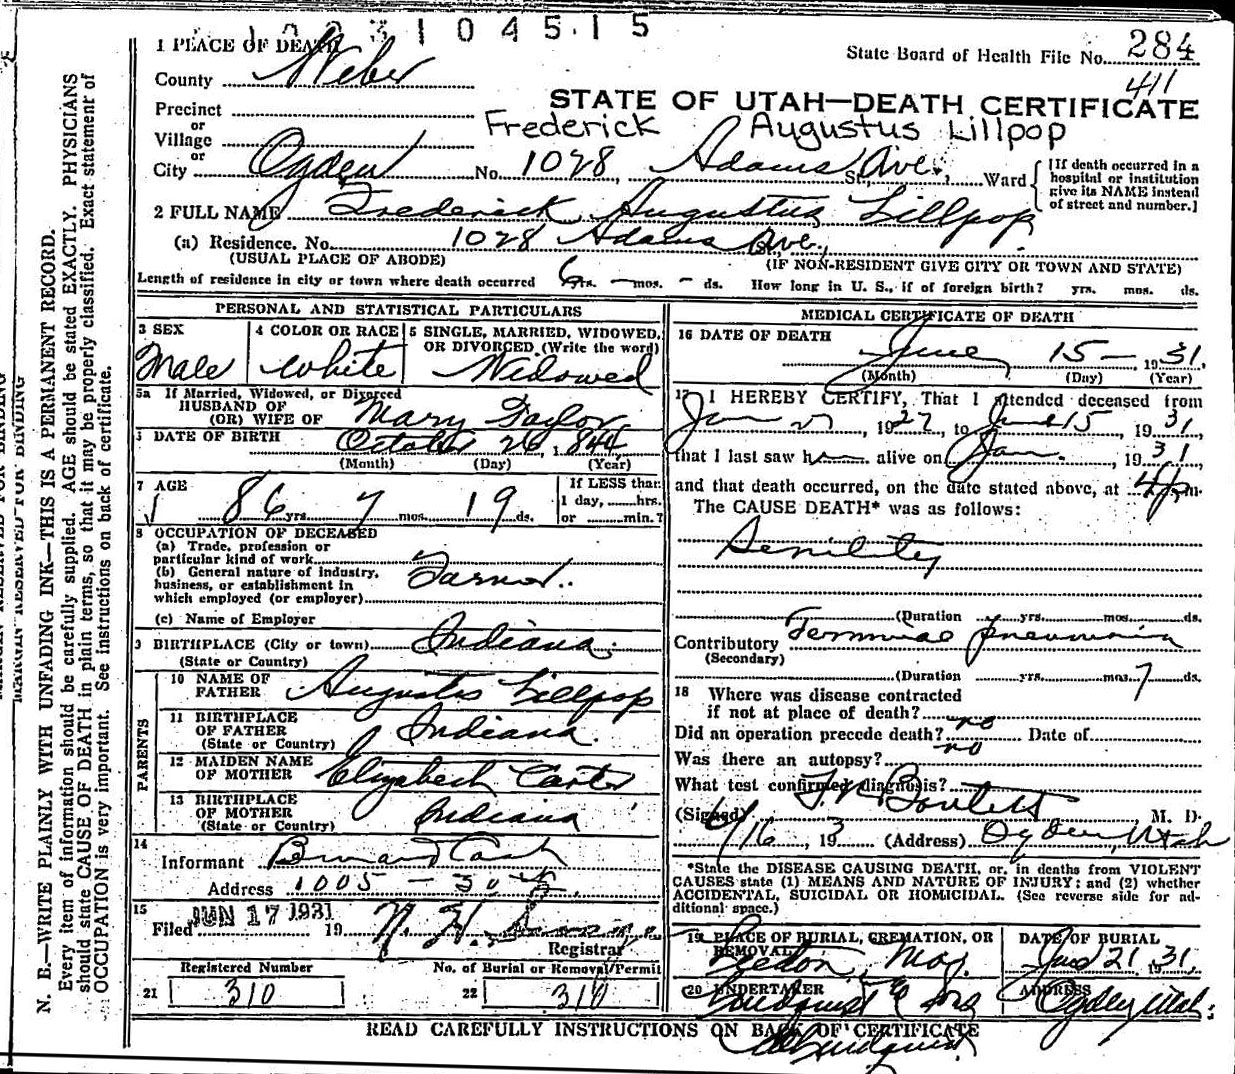 1 0 2 3 1 0 4 5 1 5
1 PLACE OF DEATH
State Board of Health File No. 284
County Weber
411
STATE OF UTAH—DEATH CERTIFICATE
Precinct
or
Village
Frederick Augustus Lillpop
or
City Ogden No. 1028, Adams Ave. St., Ward
[If death occurred in a hospital or institution give its NAME instead of street and number.]
2 FULL NAME Frederick Augustus Lillpop
(a) Residence. No. 1028 Adams Ave., St.,
(USUAL PLACE OF ABODE) (IF NON-RESIDENT GIVE CITY OR TOWN AND STATE)
Length of residence in city or town where death occurred 6 yrs. — mos. – ds. How long in U. S., if of foreign birth? yrs. mos. ds.
PERSONAL AND STATISTICAL PARTICULARS
3 SEX Male
4 COLOR OR RACE White
5 SINGLE, MARRIED, WIDOWED, OR DIVORCED (Write the word) Widowed
5a If Married, Widowed, or Divorced
HUSBAND OF
(OR) WIFE OF Mary Taylor
6 DATE OF BIRTH October 26, 1844
(Month) (Day) (Year)
7 AGE
86 yrs. 7 mos. 19 ds.
If LESS than 1 day, hrs. or min.?
8 OCCUPATION OF DECEASED
(a) Trade, profession or particular kind of work
(b) General nature of industry, business, or establishment in which employed (or employer) Farmer
(c) Name of Employer
9 BIRTHPLACE (City or town) Indiana
(State or Country)
PARENTS
10 NAME OF FATHER Augustus Lillpop
11 BIRTHPLACE OF FATHER Indiana
(State or Country)
12 MAIDEN NAME OF MOTHER Elizabeth Carter
13 BIRTHPLACE OF MOTHER Indiana
(State or Country)
14
Informant
Address 1005 – 30th
15
Filed JUN 17 1931 19 N. H.
Registrar
Registered Number No. of Burial or Removal Permit
21 310 22 310
MEDICAL CERTIFICATE OF DEATH
16 DATE OF DEATH
June 15 — 1931
(Month) (Day) (Year)
17 I HEREBY CERTIFY, That I attended deceased from
Jan 1927, to June 15, 1931,
that I last saw him alive on Jan., 1931
and that death occurred, on the date stated above, at 4 p m.
The CAUSE DEATH* was as follows:
Senility
(Duration yrs. mos. ds.
Contributory Terminal pneumonia
(Secondary)
(Duration yrs. mos. 7 ds.
18 Where was disease contracted
if not at place of death?
Did an operation precede death? no Date of
Was there an autopsy? no
What test confirmed diagnosis?
(Signed) M. D.
6/16, 193 (Address) Ogden, Utah
*State the DISEASE CAUSING DEATH, or, in deaths from VIOLENT
CAUSES state (1) MEANS AND NATURE OF INJURY; and (2) whether
ACCIDENTAL, SUICIDAL OR HOMICIDAL. (See reverse side for additional space.)
19 PLACE OF BURIAL, CREMATION, OR REMOVAL
DATE OF BURIAL
21 1931
20 UNDERTAKER Lindquist & Sons
ADDRESS Ogden, Utah
READ CAREFULLY INSTRUCTIONS ON BACK OF CERTIFICATE
Lindquist
MARGIN RESERVED FOR BINDING
N. B.—WRITE PLAINLY WITH UNFADING INK—THIS IS A PERMANENT RECORD.
Every item of information should be carefully supplied. AGE should be stated EXACTLY. PHYSICIANS
should state CAUSE OF DEATH in plain terms, so that it may be properly classified. Exact statement of
OCCUPATION is very important. See instructions on back of certificate.